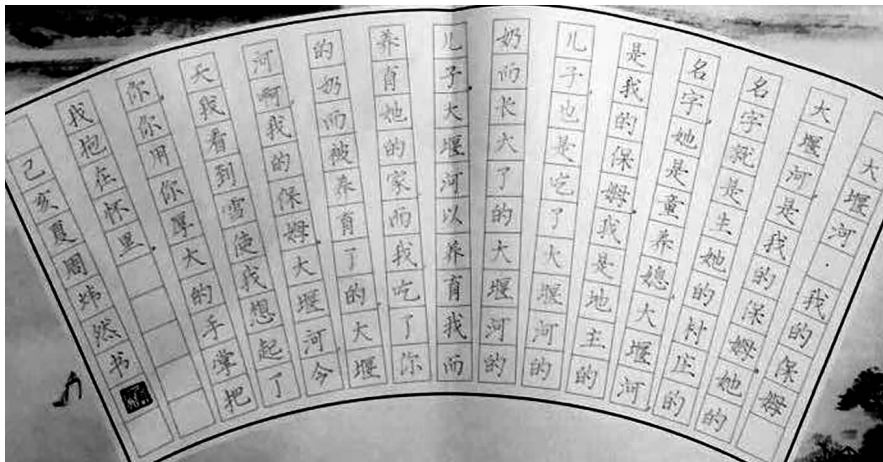 大堰河·我的保姆
大堰河，是我的保姆。她的
名字就是生她的村庄的
名字，她是童养媳，大堰河，
是我的保姆。我是地主的
儿子也是吃了大堰河的
奶而长大了的大堰河的
儿子。大堰河以养育我而
养育她的家而我吃了你
的奶而被养育了的，大堰
河啊，我的保姆。大堰河，今
天我看到雪使我想起了
你，你用你厚大的手掌把
我抱在怀里。
己亥夏周炜然书